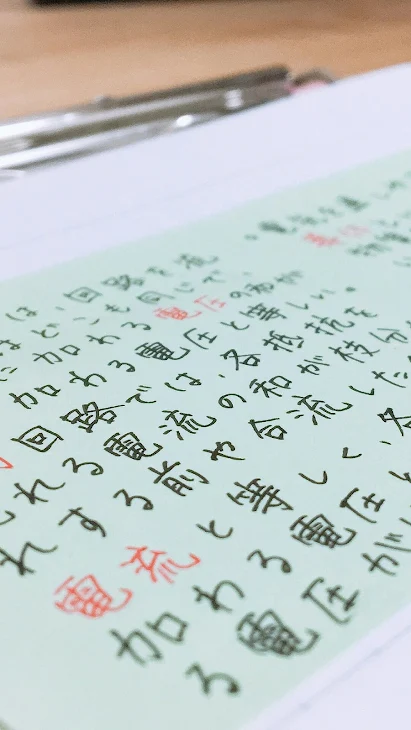 ・電気を通し
は、回路を流
はどこも同じで、
に加わる電圧の和が
加わる電圧と等しい。
回路では、各抵抗を
れる電流の和が枝分
れする前や合流した
電流と等しく、各
加わる電圧と
る電圧が